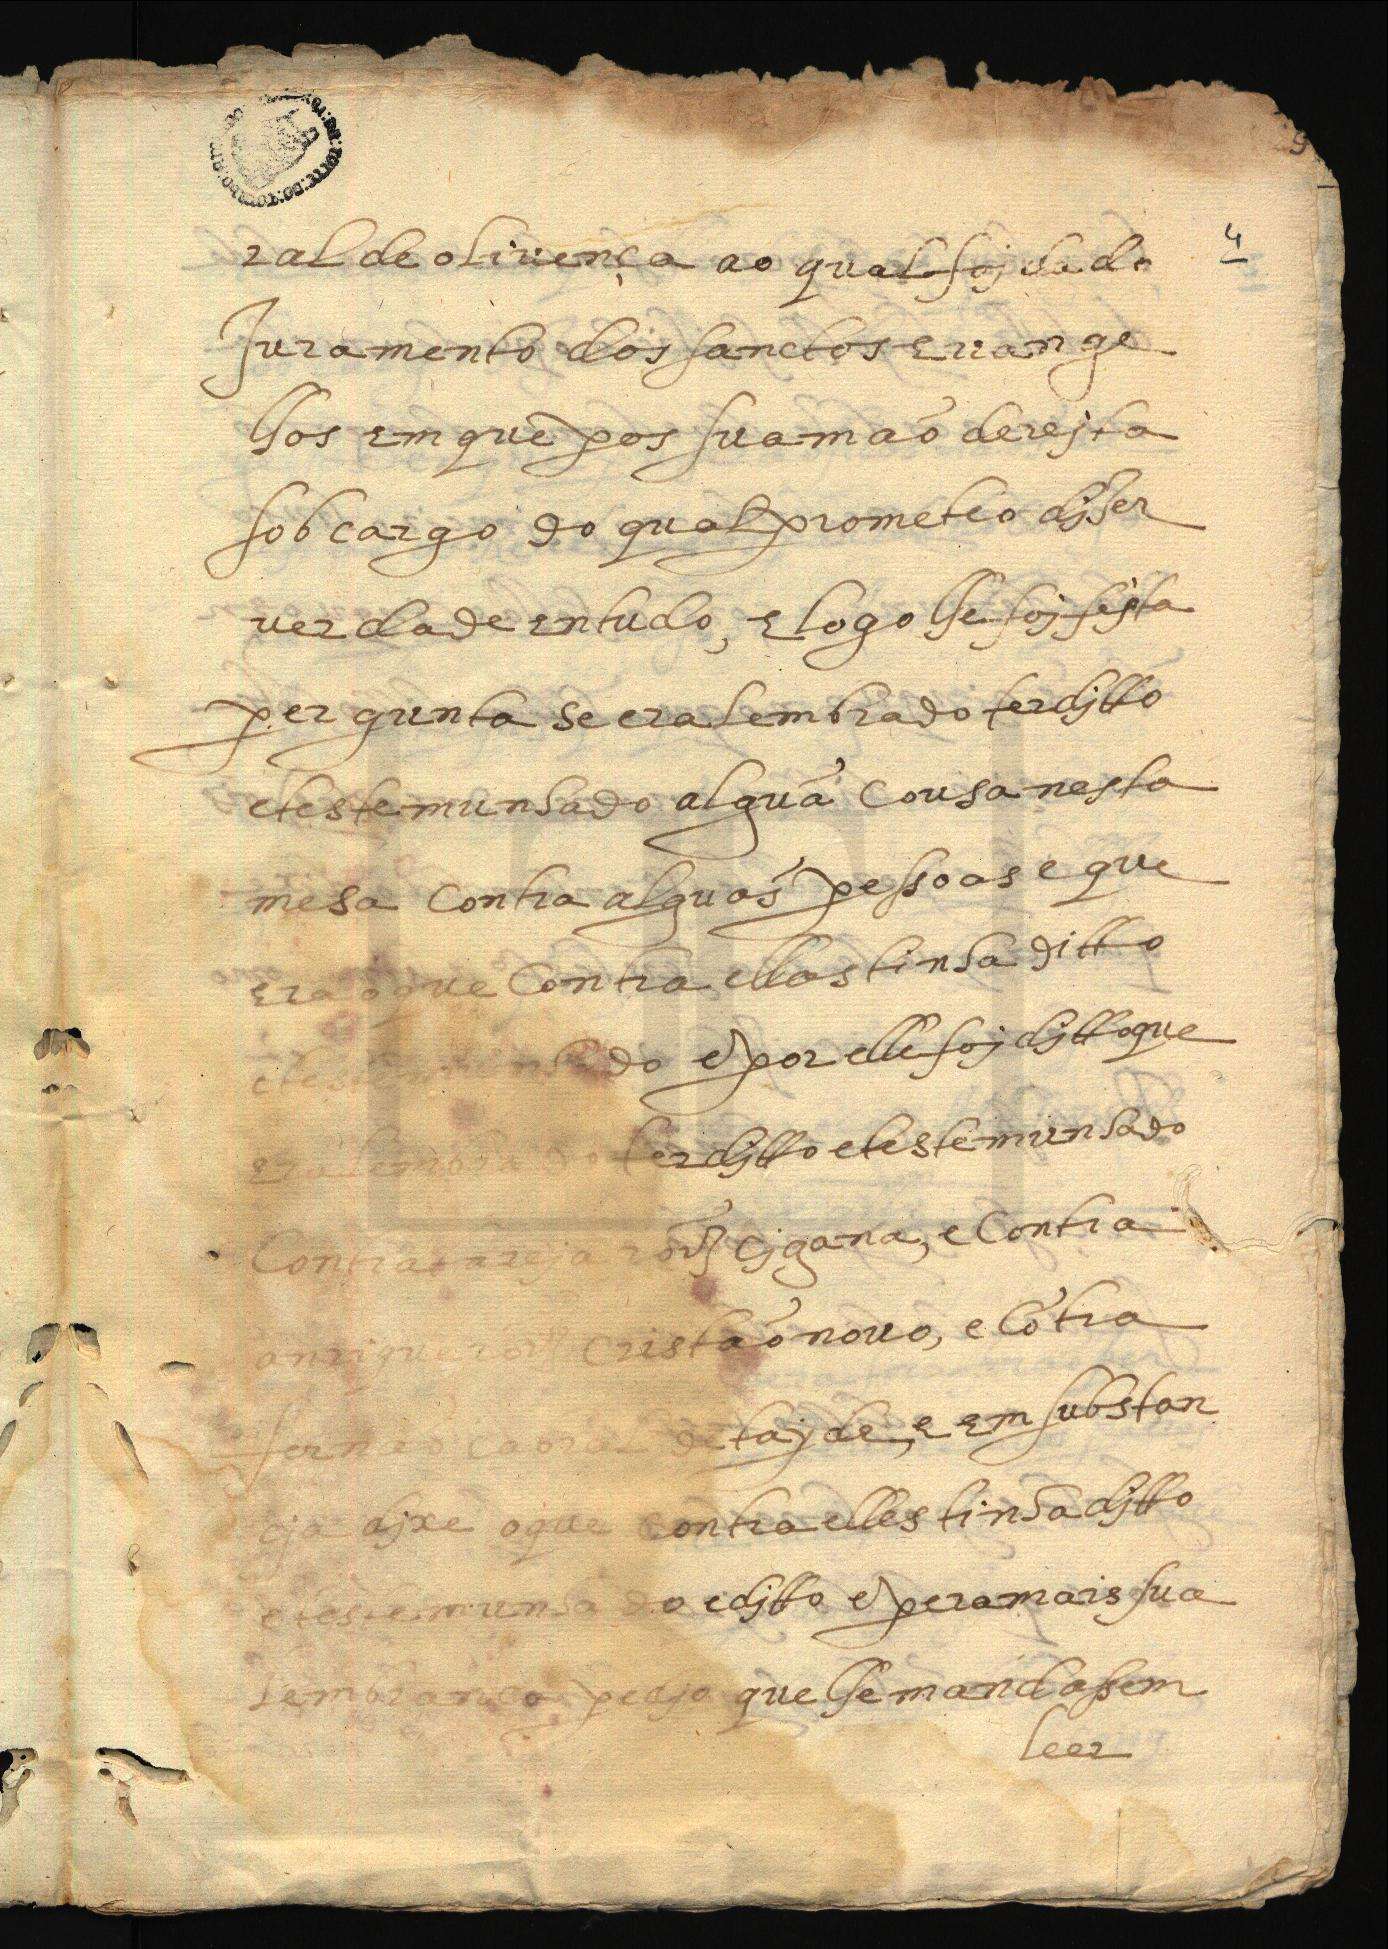 4
ral de oliuença ao qual foj dado
Juramento dos sanctos euange
lhos em que pos sua mão derejta
sob cargo do qual prometeo djzer
uerdade em tudo, e logo lhe foj fejta
pergunta se era lembrado ter djtto
e testemunhado alguã cousa nesta
mesa contra alguãs pessoas e que
era o que contra ellas tinha ditto
e testemunhado e por elle foj djtto que
era lembrado ter djtto e testemunhado
contra rõiz cjgana, e contra
anrique roiz cristão nouo, e cõtra
fernão cabral de tajde, e em substan
cja djxe o que contra elles tinha djtto
e testemunhado e djtto e pera mais sua
lembrança pedjo que lhe mandassem
leer